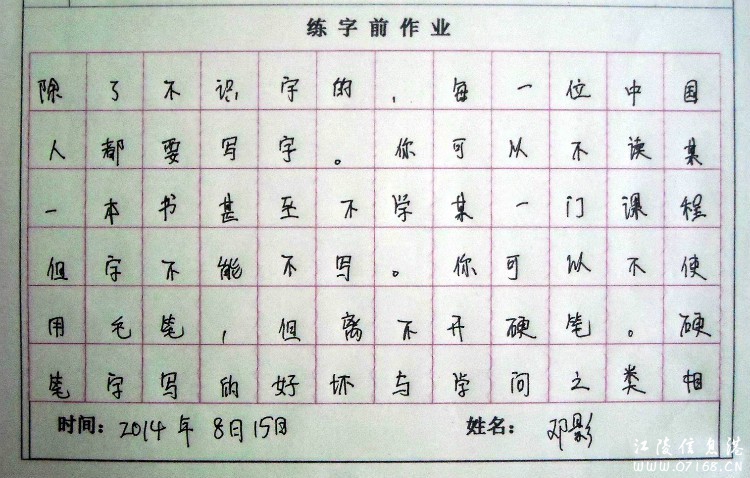 练字前作业
除了不识字的，每一位中国
人都要写字。你可以不读某
一本书甚至不学某一门课程
但字不能不写。你可以不使
用毛笔，但离不开硬笔。硬
笔字写的好坏与学问之类相
时间：2014年8月15日 姓名：邓影
江陵信息港
WWW.07168.CN